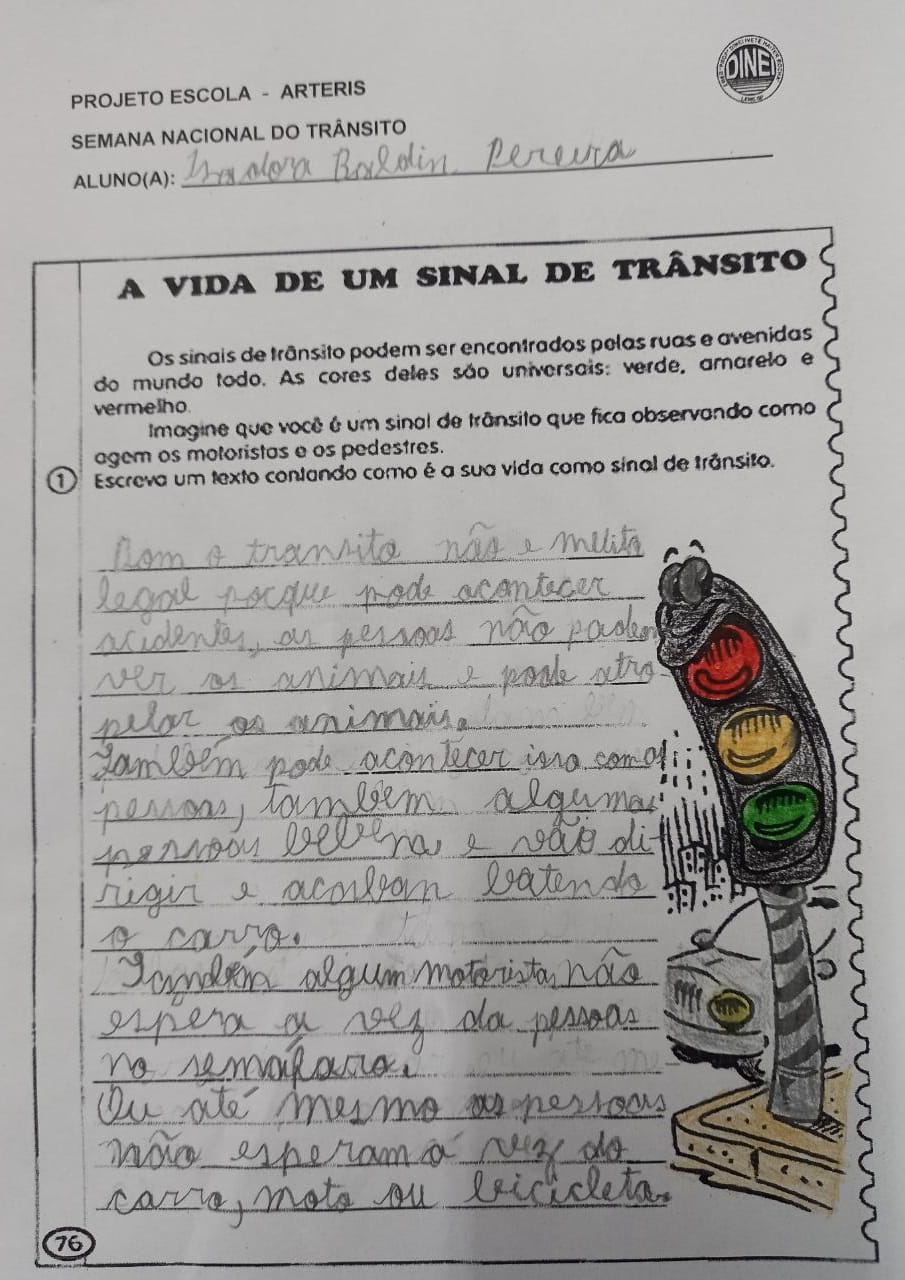 DINE
PROJETO ESCOLA - ARTERIS
SEMANA NACIONAL DO TRÂNSITO
ALUNO(A): Isadora Baldin Pereira
A VIDA DE UM SINAL DE TRÂNSITO
Os sinais de trânsito podem ser encontrados pelas ruas e avenidas
do mundo todo. As cores deles são universais: verde, amarelo e
vermelho.
Imagine que você é um sinal de trânsito que fica observando como
agem os motoristas e os pedestres.
1 Escreva um texto contando como é a sua vida como sinal de trânsito.
Bom o transito não e muito
legal porque pode acontecer
acidentes, as pessoas não podem
ver os animais e pode atro-
pelar os animais.
Também pode acontecer isso com as
pessoas, também algumas
pessoas e vão di-
rigir e acabam batendo
o carro.
Também algum motorista não
espera a vez da pessoas
no semáfaro.
Ou até mesmo as pessoas
não esperam a vez do
carro, moto ou bicicleta.
76